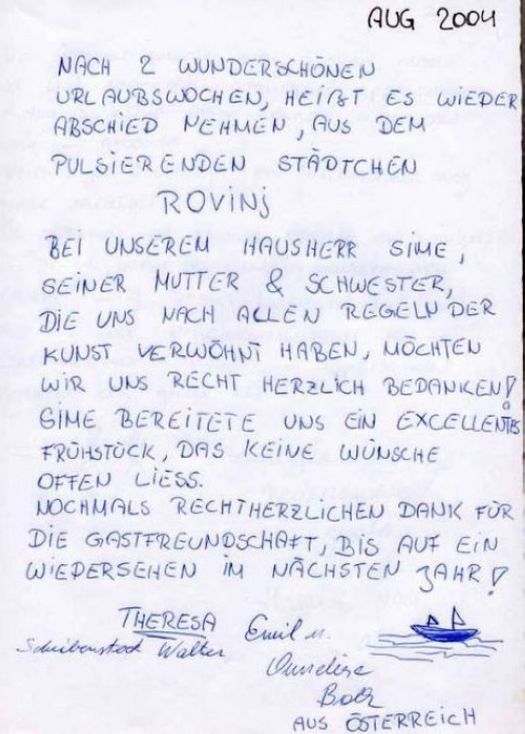 AUG 2004
NACH 2 WUNDERSCHÖNEN
URLAUBSWOCHEN, HEIßT ES WIEDER
ABSCHIED NEHMEN, AUS DEM
PULSIERENDEN STÄDTCHEN
ROVINJ
BEI UNSEREM HAUSHERR SIME,
SEINER MUTTER & SCHWESTER,
DIE UNS NACH ALLEN REGELN DER
KUNST VERWÖHNT HABEN, MÖCHTEN
WIR UNS RECHT HERZLICH BEDANKEN!
SIME BEREITETE UNS EIN EXCELLENTES
FRÜHSTÜCK, DAS KEINE WÜNSCHE
OFFEN LIESS.
NOCHMALS RECHTHERZLICHEN DANK FÜR
DIE GASTFREUNDSCHAFT, BIS AUF EIN
WIEDERSEHEN IM NÄCHSTEN JAHR!
THERESA Emil u.
Walter
AUS ÖSTERREICH